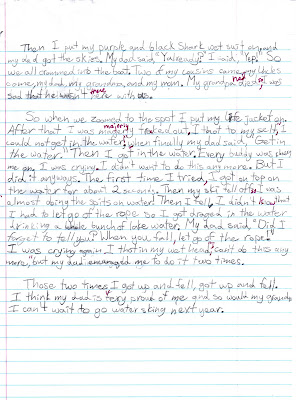 Then I put my purple and black Shark wet suit on, and
my dad got the skies. My dad said, "Ya ready?" I said, "Yep!" So
we all crammed into the boat. Two of my cousins came, my Uncles
came, my dad, my grandma, and my mom. My grandpa had died, so I was
sad that he wasn't there with us.
So when we zoomed to the spot I put my life jacket on.
After that I was majorly freaked out. I thot to my self, I
could not get in the water, when finally my dad said, "Get in
the water." Then I got in the water. Every buddy was
me on, I was crying. I didn't want to do this any more. But I
did it anyways. The first time I tried, I got on top on
the water for about 2 seconds. Then my ski fell off, I was
almost doing the splits on water! Then I fell. I didn't know that
I had to let go of the rope so I got draged in the water
drinking a whole bunch of lake water. My dad said. "Did I
forget to tell you? When you fall, let go of the rope!"
I was crying again. I thot in my wet head, can't do this any
more," but my dad encouraged me to do it two times.
Those two times I got up and fell, got up and fell.
I think my dad is very proud of me and so would my grandpa
I can't wait to go water skiing next year.